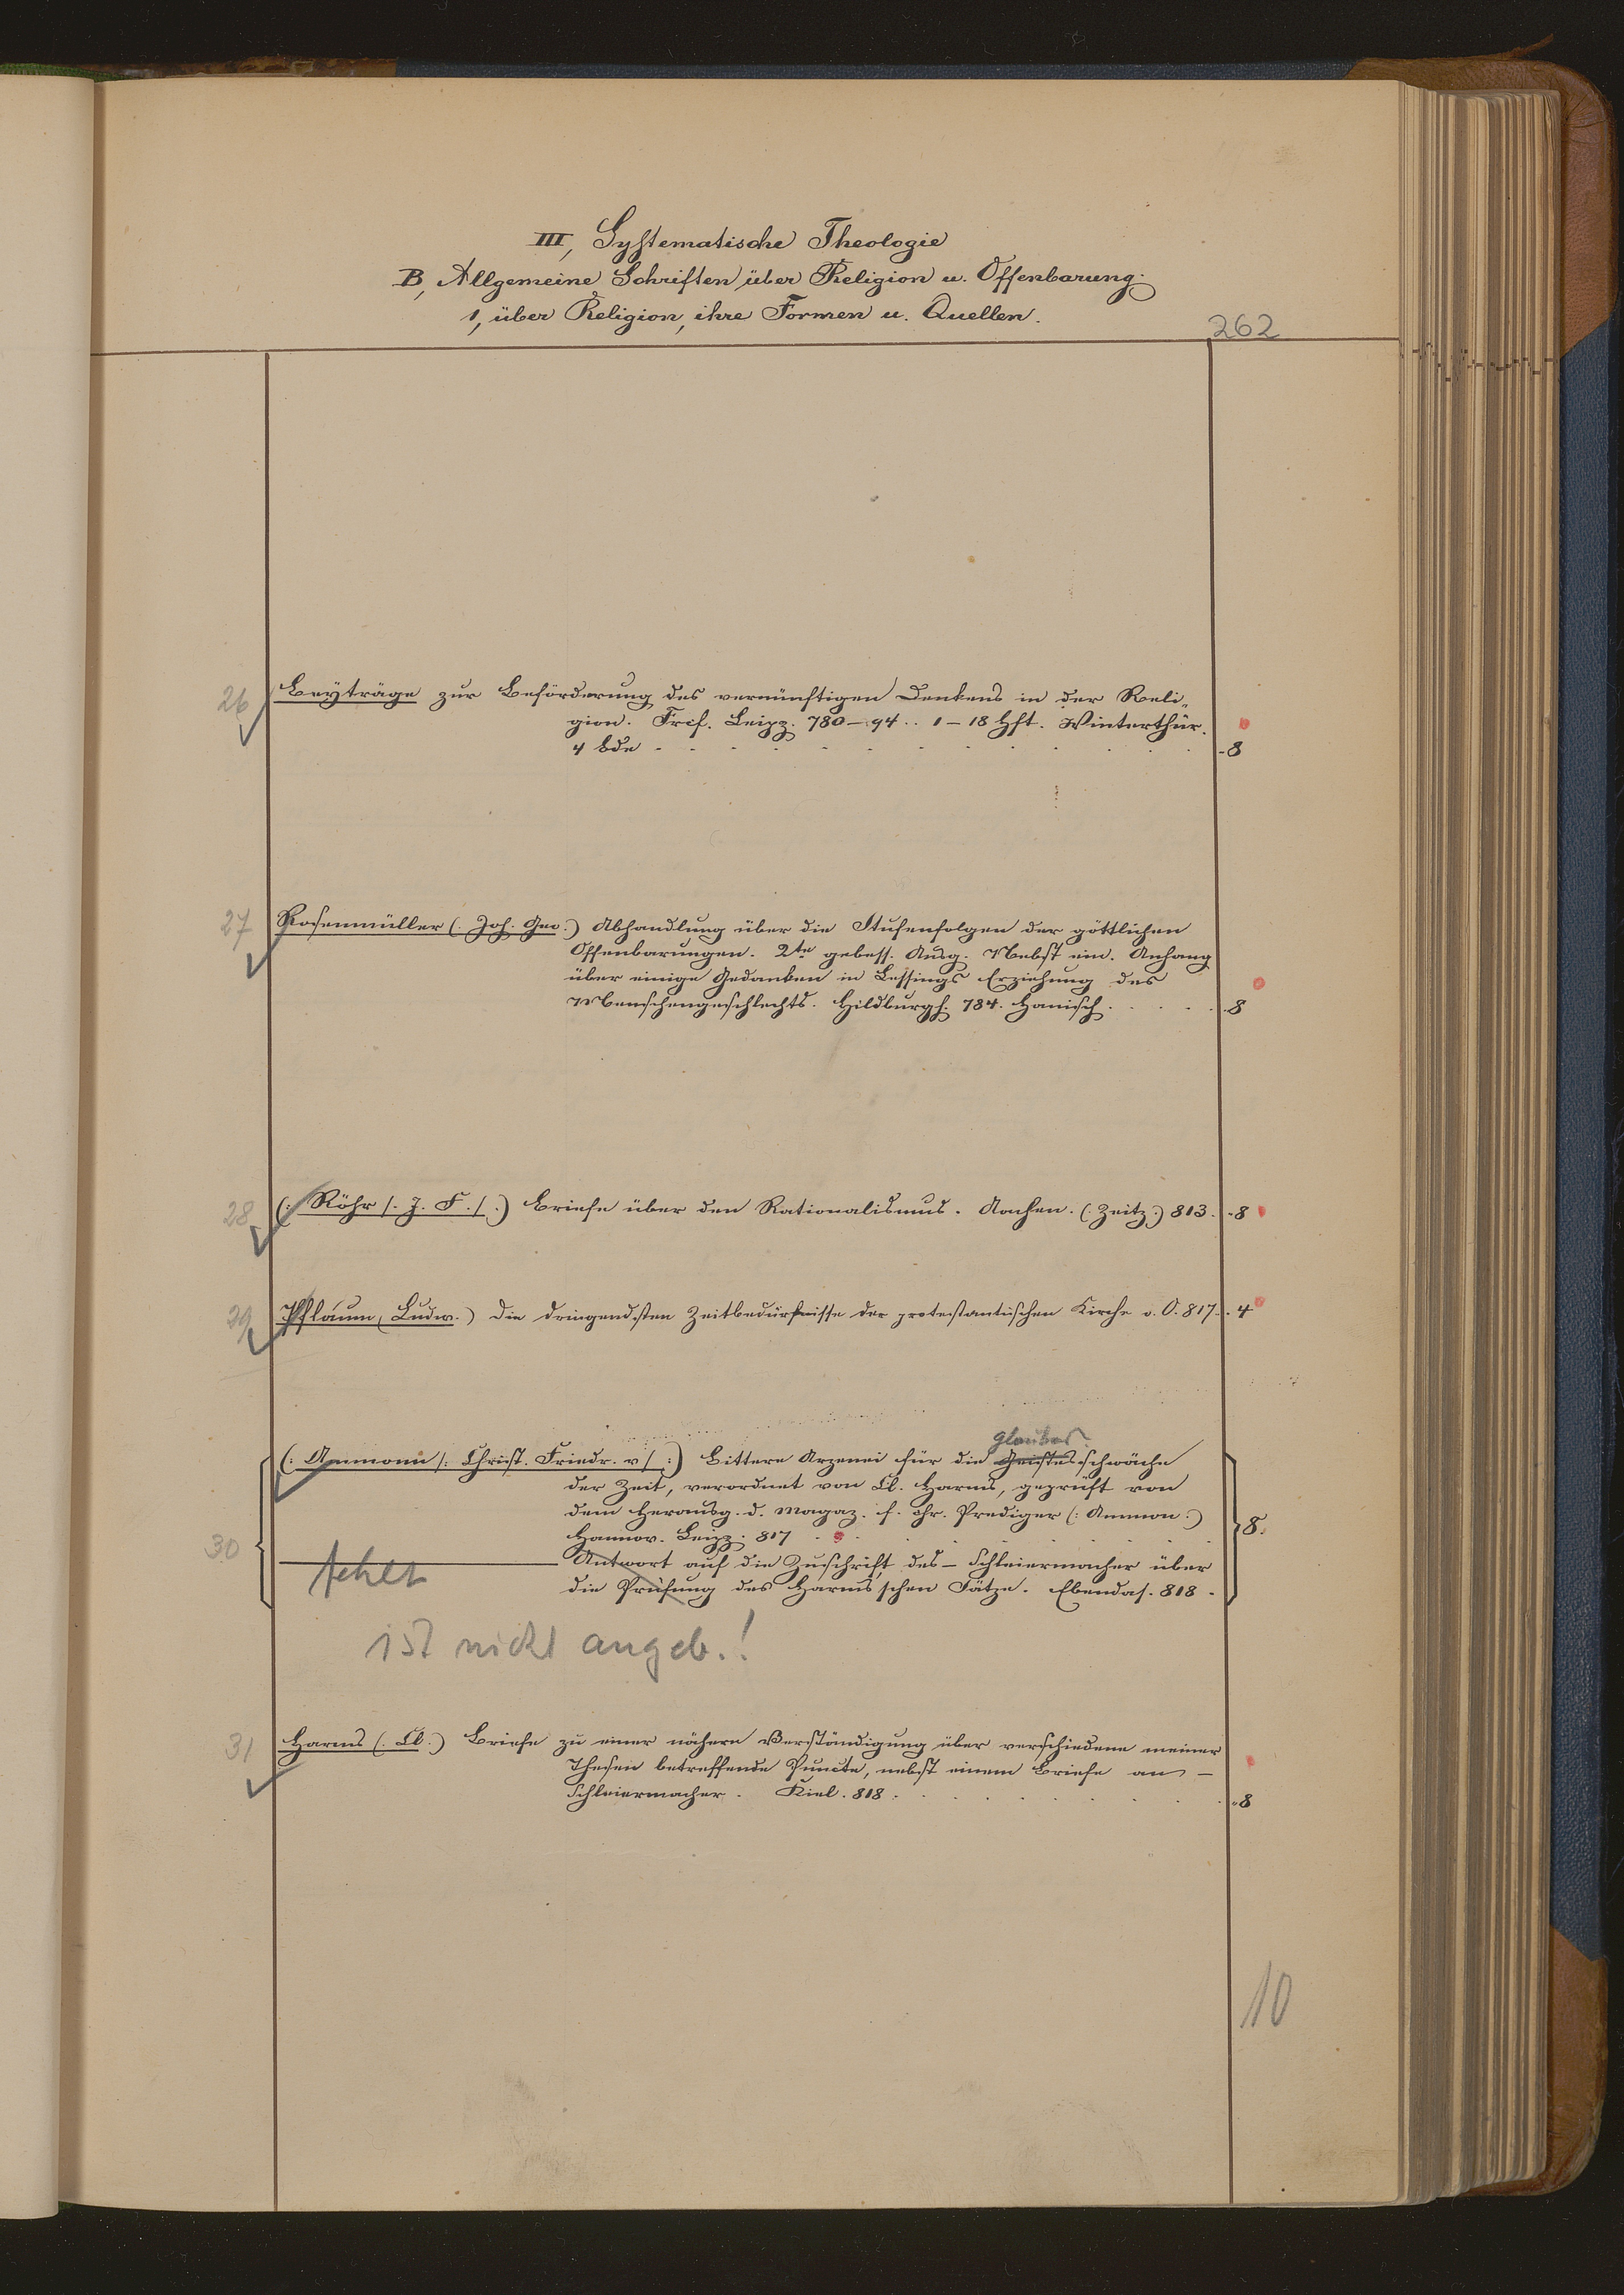 III, Systematische Theologie
B, Allgemeine Schriften über Religion u. Offenbarung.
1, über Religion, ihre Formen u. Quellen.
262
26 Beyträge zur Beförderung des vernünftigen Denkens in der Reli-
gion. Frkf. Leipz. 780-94.. 1-18 Hft. Winterthur.
4 Bde - 8
27 Rosenmüller (: Joh. Geo.) Abhandlung über die Stufenfolgen der göttlichen
Offenbarungen. 2te gebess. Ausg. Nebst ein. Anhang
über einige Gedanken in Lessings Erziehung des
Menschengeschlechts. Hildburgh. 784. Hanisch. 8
28 (: Röhr /. J. F. /.) Briefe über den Rationalismus. Aachen. (: Zeitz:) 813. - 8
29 Pflaum (Ludw.) die dringendsten Zeitbedürfnisse der protestantischen Kirche o. O. 817. 4
Glaubens
(: Ammon /: Christ. Friedr. v /:) Bittere Arzenei für die Geistesschwäche
der Zeit, verordnet von Cl. Harms, geprüft von
dem Herausg. d. Magaz. f. chr. Prediger (: Ammon :)
30 Hannov. Leipz. 817 8.
fehlt Antwort auf die Zuschrift des - Schleiermacher über
die Prüfung des Harms'schen Sätze. Ebendas. 818.
ist nicht angeb.!
31 Harms (: Cl.) Briefe zu einer nähern Verständigung über verschiedene meiner
Thesen betreffende Puncte, nebst einem Briefe an -
Schleiermacher. Kiel. 818. - 8
10